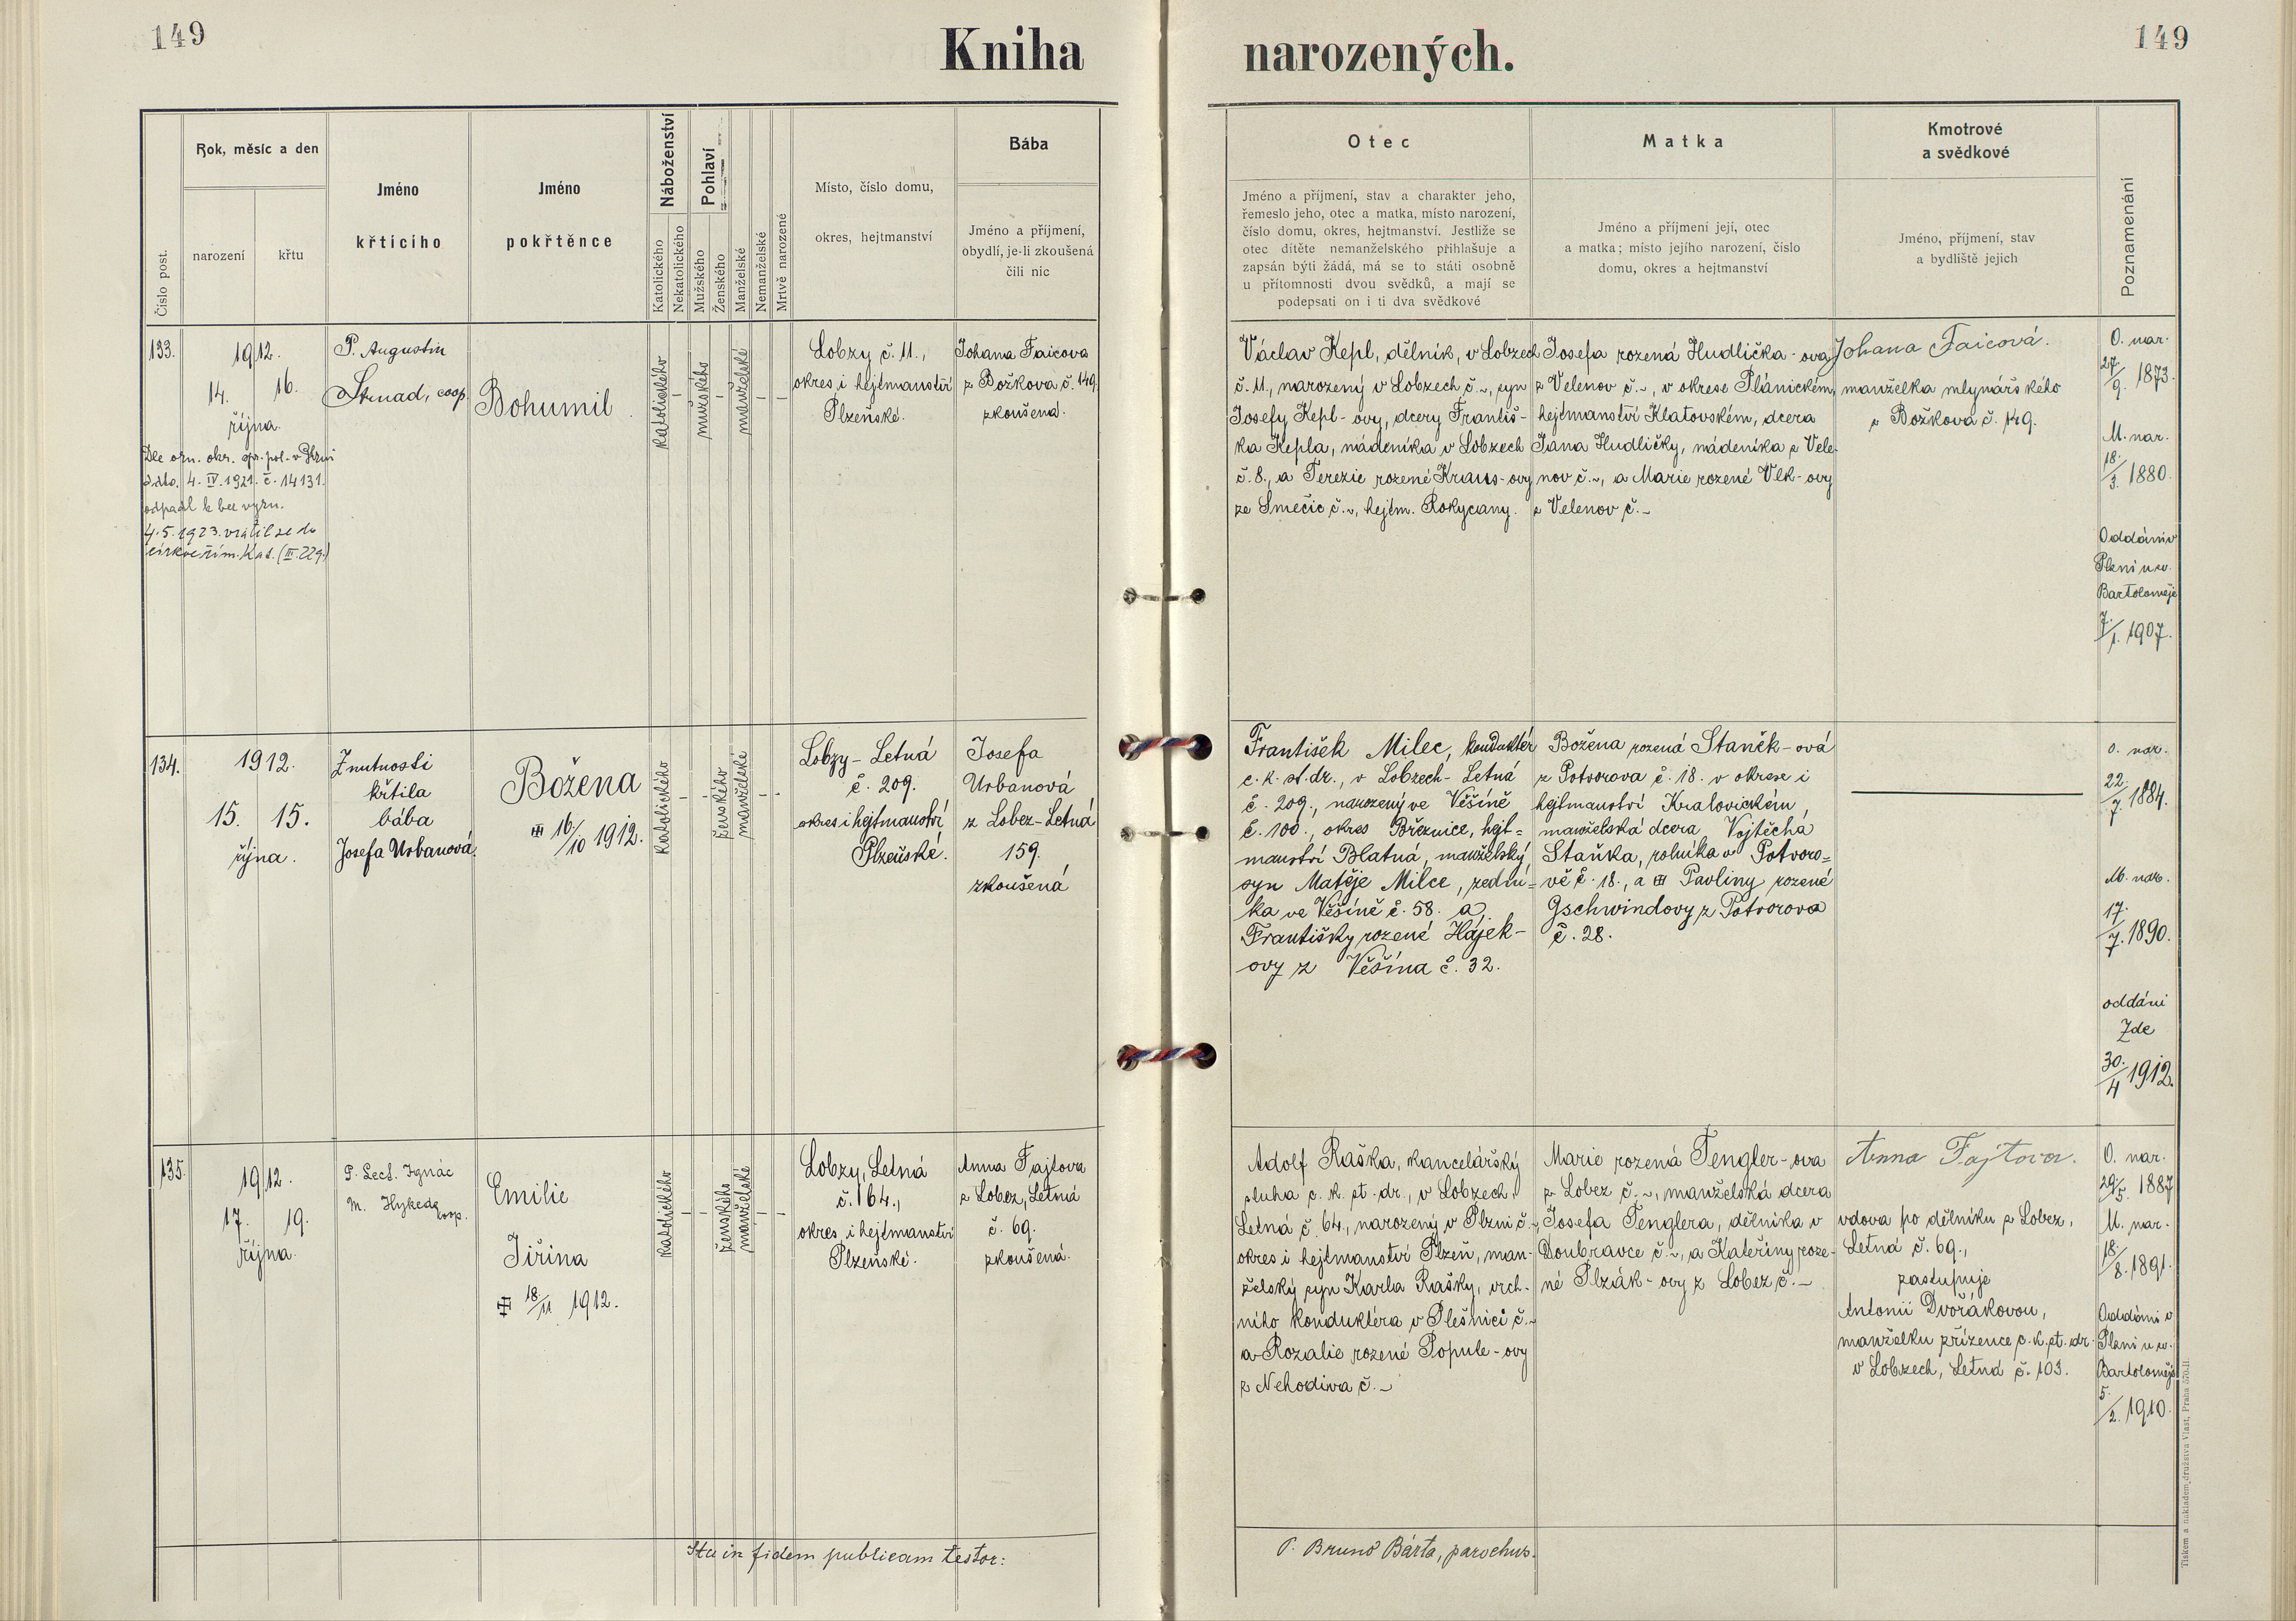 149
Kniha narozených.
149
Číslo post.
Rok, měsíc a den
narození
křtu
Jméno
křtícího
Jméno
pokřtěnce
Náboženství
Katolického
Nekatolického
Pohlaví
Mužského
Ženského
Manželské
Nemanželské
Mrtvě narozené
Místo, číslo domu,
okres, hejtmanství
Bába
Jméno a příjmení,
obydlí, je-li zkoušená
čili nic
Otec
Jméno a příjmení, stav a charakter jeho,
řemeslo jeho, otec a matka, místo narození,
číslo domu, okres, hejtmanství. Jestliže se
otec dítěte nemanželského přihlašuje a
zapsán býti žádá, má se to státi osobně
u přítomnosti dvou svědků, a mají se
podepsati on i ti dva svědkové
Matka
Jméno a příjmení její, otec
a matka; místo jejího narození, číslo
domu, okres a hejtmanství
Kmotrové
a svědkové
Jméno, příjmení, stav
a bydliště jejich
Poznamenání
133.
1912.
14. 16.
října.
Dle ozn. okr. spr. pol. v Plzni
ddto. 4. IV. 1921. č. 14131.
odpadl k bez vyzn.
4.5.1923. vrátil se do
církve řím. kat. (III. 229.)
P. Augustin
Strnad, coop.
Bohumil.
katolického
mužského
manželské
Lobzy č. 11.,
okres i hejtmanství
Plzeňské.
Johana Faicova
z Božkova, č. 149.
zkoušená.
Václav Kepl, dělník, v Lobzech
č. 11., narozený v Lobzech č. ~, syn
Josefy Kepl-ovy, dcery Františ-
ka Kepla, nádeníka v Lobzech
č. 8., a Terezie rozené Kraus-ovy
ze Smečic č. ~, hejtm. Rokycany.
Josefa rozená Hudlička-ova
z Velenov č. ~, v okrese Plánickém,
hejtmanství Klatovském, dcera
Jana Hudličky, nádeníka z Vele-
nov č. ~, a Marie rozené Vlk-ovy
z Velenov č. ~
Johana Faicová.
manželka mlynářského
z Božkova č. 149.
O. nar.
27/9. 1873.
M. nar.
18/3. 1880.
Oddáni v
Plzni u sv.
Bartoloměje
7/1. 1907.
134.
1912.
15. 15.
října.
Z nutnosti
křtila
bába
Josefa Urbanová.
Božena
16/10 1912.
katolického
ženského
manželské
Lobzy-Letná
č. 209.
okres i hejtmanství
Plzeňské.
Josefa
Urbanová
z Lobez-Letná
159.
zkoušená
František Milec, konduktér
c. k. st. dr., v Lobzech-Letná
č. 209., narozený ve Věšíně
č. 100., okres Březnice, hejt=
manství Blatná, manželský
syn Matěje Milce, zední=
ka ve Věšíně č. 58. a
Františky rozené Hájek-
ovy z Věšína č. 32.
Božena rozená Staněk-ová
z Potvorova č. 18. v okrese i
hejtmanství Kralovickém,
manželská dcera Vojtěcha
Staňka, rolníka v Potvoro=
vě č. 18., a Pavliny rozené
Gschwindovy z Potvorova
č. 28.
O. nar.
22/7. 1884.
M. nar.
17./7. 1890.
oddáni
Zde
30./4 1912.
135.
1912.
17. 19.
října.
P. Lect. Ignác
M. Hykeda
coop.
Emilie
Jiřina
18/11 1912.
katolického
ženského
manželské
Lobzy, Letná
č. 164.,
okres i hejtmanství
Plzeňské.
Anna Fajtova
z Lobez, Letná
č. 69.
zkoušená.
Adolf Raška, kancelářský
sluha c. k. st. dr., v Lobzech,
Letná č. 64., narozený v Plzni č. ~,
okres i hejtmanství Plzeň, man-
želský syn Karla Rašky, vrch-
ního konduktéra v Plešnici č. ~
a Rozalie rozené Popule-ovy
z Nehodiva č. ~
Marie rozená Tengler-ova
z Lobez č. ~, manželská dcera
Josefa Tenglera, dělníka v
Doubravce č. ~, a Kateřiny roze-
né Plzák-ovy z Lobez č. ~
Anna Fajtova.
vdova po dělníku z Lobez,
Letná č. 69.,
zastupuje
Antonii Dvořákovou,
manželku zřízence c. k. st. dr.
v Lobzech, Letná č. 103.
O. nar.
29/5. 1887
M. nar.
18/8. 1891.
Oddáni v
Plzni u sv.
Bartoloměje
5./2. 1910.
Ita in fidem publicam testor:
P. Bruno Bárta, parochus.
Tiskem a nákladem družstva Vlast, Praha 570-II.